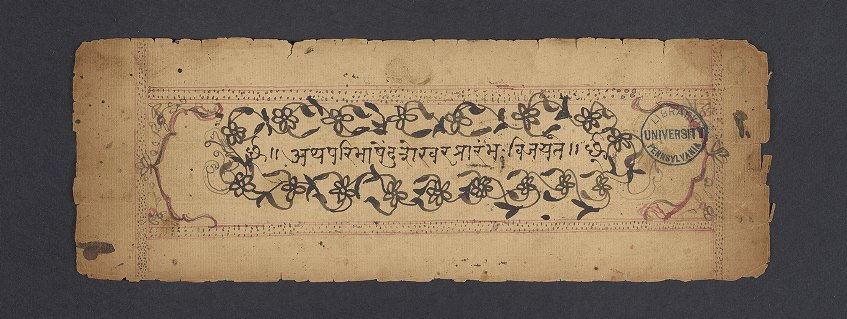 ॥ अथपरिभाषेंदुशेखरप्रारंभः विजयंत ॥
LIBRARY
UNIVERSITY
PENNSYLVANIA